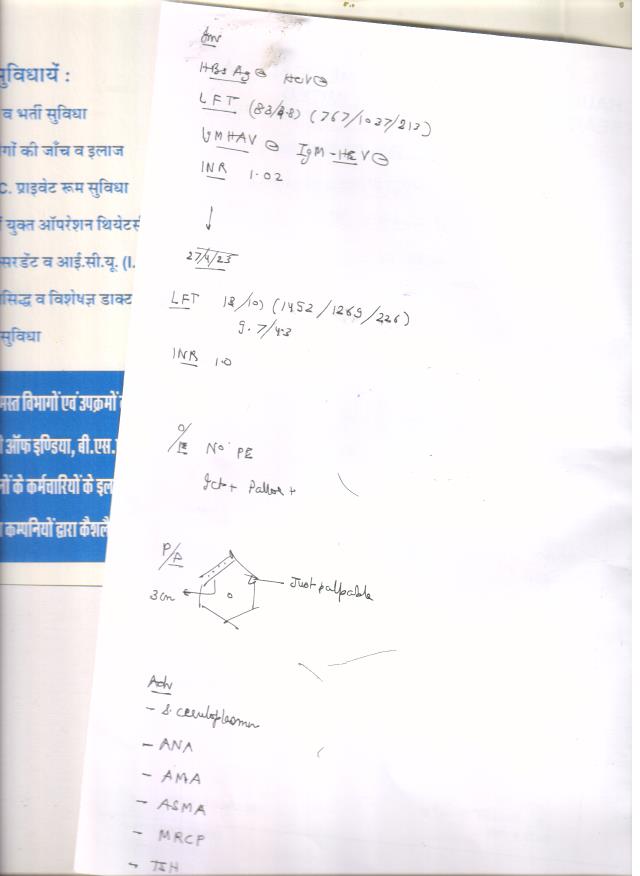 Inv
HBsAg ⊖ HCV ⊖
LFT (83/4.8) (767/1037/213)
IgMHAV ⊖ IgM-HEV ⊖
INR 1.02
↓
27/4/23
LFT 18/10) (1452/1269/226)
9.7/4.3
INR 1.0
O/E No PE
Ict+ Pallor+
P/A
Just palpable
3cm
Adv
- S. ceruloplasmin
- ANA
- AMA
- ASMA
- MRCP
- TSH
सुविधायें :
व भर्ती सुविधा
गों की जाँच व इलाज
C. प्राइवेट रूम सुविधा
युक्त ऑपरेशन थियेटर्स
सरडेंट व आई.सी.यू. (I.
सिद्ध व विशेषज्ञ डाक्ट
सुविधा
मस्त विभागों एवं उपक्रमों
ऑफ इण्डिया, बी.एस.
नों के कर्मचारियों के इल
कम्पनियों द्वारा कैशलै